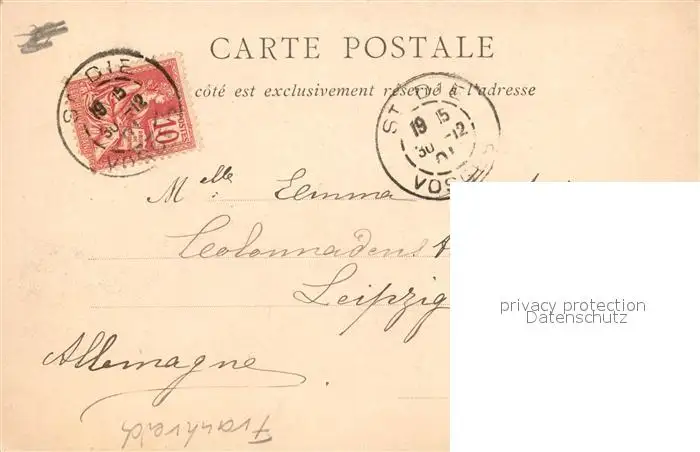 CARTE POSTALE
côté est exclusivement réservé à l'adresse
ST DIÉ
19 15
30 -12
01
VOSGES
10
POSTES
ST DIÉ
19 15
30 -12
01
VOSGES
Melle Lemma
Colonnadenst
Leipzig
Allemagne
Frankreich
privacy protection
Datenschutz